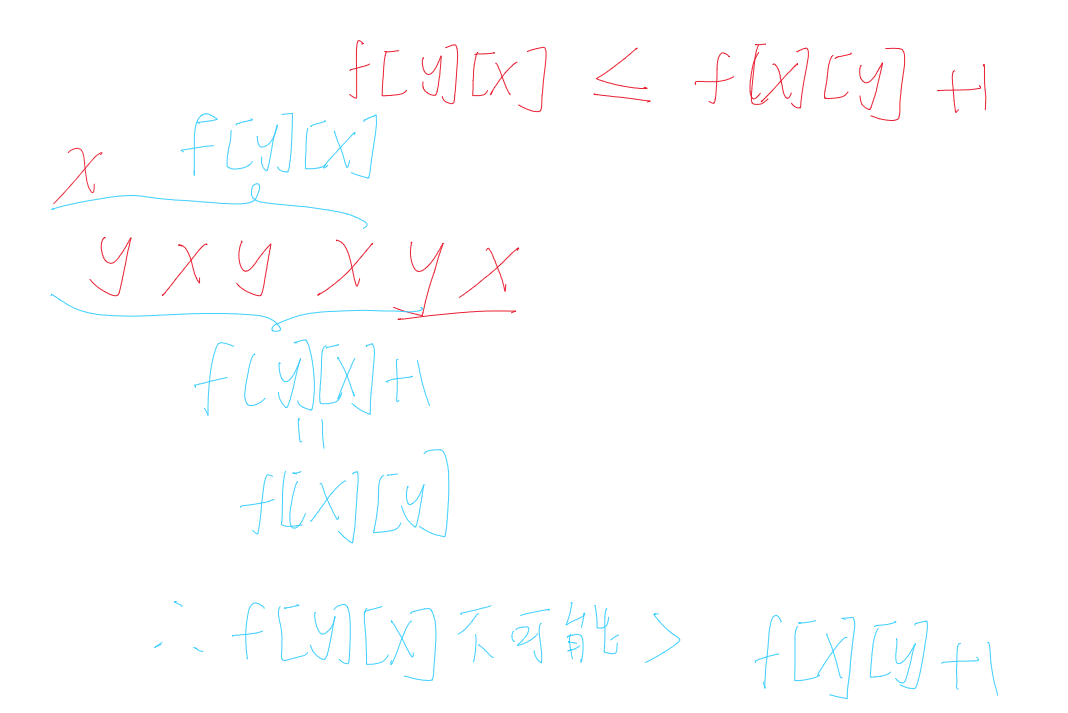 f[y][x] ≤ f[x][y]+1
f[y][x]
x
y x y x y x
f[y][x]+1
=
f[x][y]
∴ f[y][x] 不可能 > f[x][y]+1